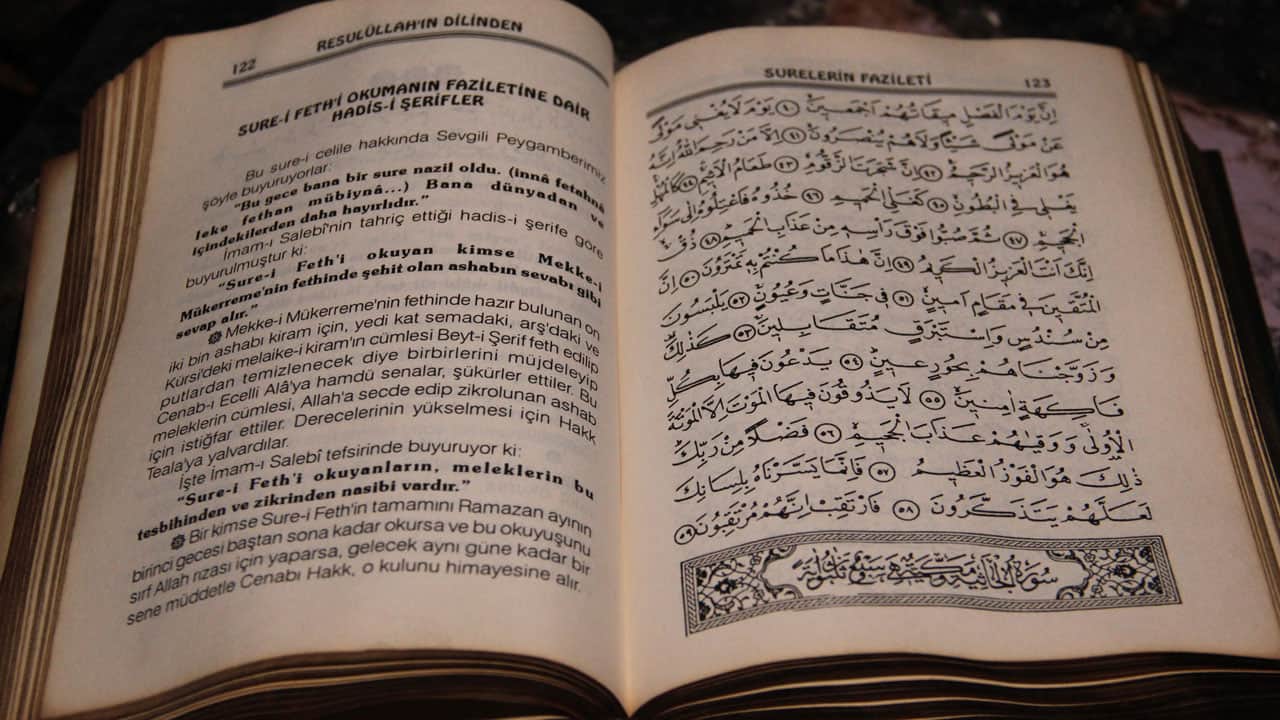 122
RESULÜLLAH'IN DİLİNDEN
SURE-İ FETH'İ OKUMANIN FAZİLETİNE DAİR
HADİS-İ ŞERİFLER
Bu sure-i celile hakkında Sevgili Peygamberimiz
şöyle buyuruyorlar:
"Bu gece bana bir sure nazil oldu. (innâ fetahnâ
leke fethan mübiynâ...) Bana dünyadan ve
içindekilerden daha hayırlıdır."
İmam-ı Salebî'nin tahriç ettiği hadis-i şerife göre
buyurulmuştur ki:
"Sure-i Feth'i okuyan kimse Mekke-i
Mükerreme'nin fethinde şehit olan ashabın sevabı gibi
sevap alır."
Mekke-i Mükerreme'nin fethinde hazır bulunan on
iki bin ashabı kiram için, yedi kat semadaki, arş'daki ve
Kürsi'deki melaike-i kiram'ın cümlesi Beyt-i Şerif feth edilip
putlardan temizlenecek diye birbirlerini müjdeleyip
Cenab-ı Ecelli Alâ'ya hamdü senalar, şükürler ettiler. Bu
meleklerin cümlesi, Allah'a secde edip zikrolunan ashab
için istiğfar ettiler. Derecelerinin yükselmesi için Hakk
Teala'ya yalvardılar.
İşte İmam-ı Salebî tefsirinde buyuruyor ki:
"Sure-i Feth'i okuyanların, meleklerin bu
tesbihinden ve zikrinden nasibi vardır."
Bir kimse Sure-i Feth'in tamamını Ramazan ayının
birinci gecesi baştan sona kadar okursa ve bu okuyuşunu
sırf Allah rızası için yaparsa, gelecek aynı güne kadar bir
sene müddetle Cenabı Hakk, o kulunu himayesine alır.
SURELERİN FAZİLETİ
123
اِنَّ يَوْمَ الْفَصْلِ مِيقَاتُهُمْ اَجْمَعِينَۙ ﴿٤٠﴾ يَوْمَ لَا يُغْنٖى مَوْلًى
عَنْ مَوْلًى شَيْـًٔا وَلَا هُمْ يُنْصَرُونَۙ ﴿٤١﴾ اِلَّا مَنْ رَحِمَ اللّٰهُ اِنَّهُ
هُوَ الْعَزِيزُ الرَّحِيمُ ﴿٤٢﴾ اِنَّ شَجَرَتَ الزَّقُّومِۙ ﴿٤٣﴾ طَعَامُ الْاَثِيمِ ﴿٤٤﴾ كَالْمُهْلِ
يَغْلٖى فِى الْبُطُونِۙ ﴿٤٥﴾ كَغَلْىِ الْحَمِيمِ ﴿٤٦﴾ خُذُوهُ فَاعْتِلُوهُ اِلٰى سَوَٓاءِ
الْجَحِيمِۗ ﴿٤٧﴾ ثُمَّ صُبُّوا فَوْقَ رَأْسِهٖ مِنْ عَذَابِ الْحَمِيمِۗ ﴿٤٨﴾ ذُقْ
اِنَّكَ اَنْتَ الْعَزِيزُ الْكَرِيمُ ﴿٤٩﴾ اِنَّ هٰذَا مَا كُنْتُمْ بِهٖ تَمْتَرُونَ ﴿٥٠﴾ اِنَّ
الْمُتَّقِينَ فٖى مَقَامٍ اَمِينٍۙ ﴿٥١﴾ فٖى جَنَّاتٍ وَعُيُونٍۙ ﴿٥٢﴾ يَلْبَسُونَ
مِنْ سُنْدُسٍ وَاِسْتَبْرَقٍ مُتَقَابِلِينَۚ ﴿٥٣﴾ كَذٰلِكَ
وَزَوَّجْنَاهُمْ بِحُورٍ عِينٍۗ ﴿٥٤﴾ يَدْعُونَ فِيهَا بِكُلِّ
فَاكِهَةٍ اٰمِنِينَۙ ﴿٥٥﴾ لَا يَذُوقُونَ فِيهَا الْمَوْتَ اِلَّا الْمَوْتَةَ
الْاُولٰى وَوَقٰيهُمْ عَذَابَ الْجَحِيمِۙ ﴿٥٦﴾ فَضْلًا مِنْ رَبِّكَ
ذٰلِكَ هُوَ الْفَوْزُ الْعَظِيمُ ﴿٥٧﴾ فَاِنَّمَا يَسَّرْنَاهُ بِلِسَانِكَ
لَعَلَّهُمْ يَتَذَكَّرُونَ ﴿٥٨﴾ فَارْتَقِبْ اِنَّهُمْ مُرْتَقِبُونَ ﴿٥٩﴾